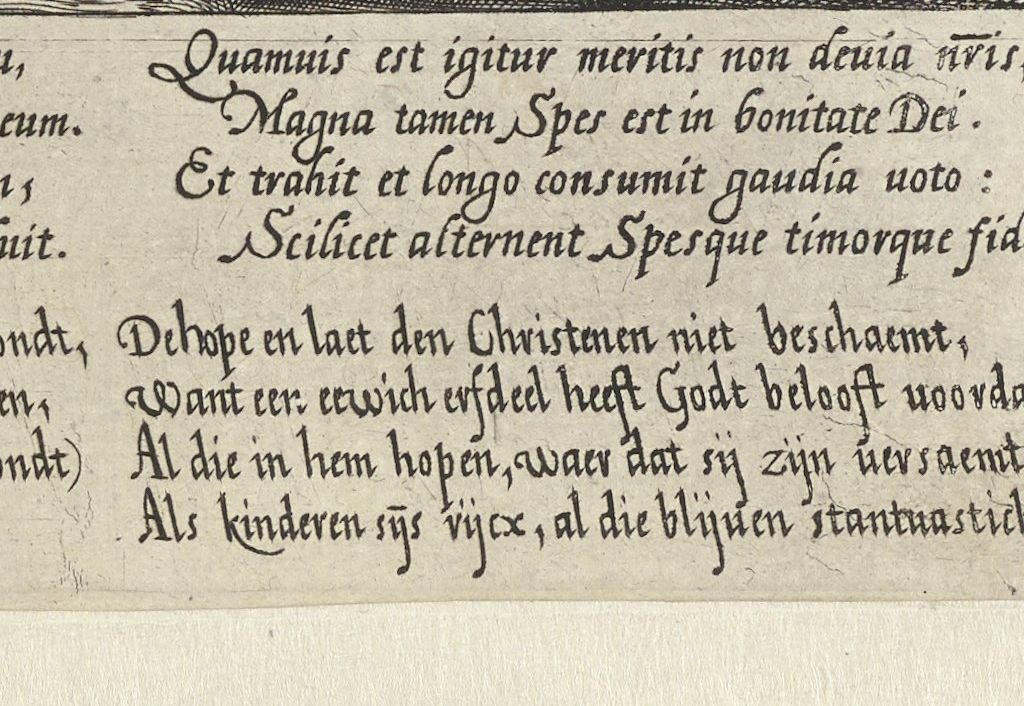 u,
eum.
n,
uit.
Quamuis est igitur meritis non deuia nr̄is,
Magna tamen Spes est in bonitate Dei.
Et trahit et longo consumit gaudia uoto:
Scilicet alternent Spesque timorque fid
ondt,
en,
ondt)
De hope en laet den Christenen niet beschaemt,
Want een eewich erfdeel heeft Godt belooft uoorda
Al die in hem hopen, waer dat sij zijn uersaemt
Als kinderen sijs rijcx, al die blijuen stantuastich